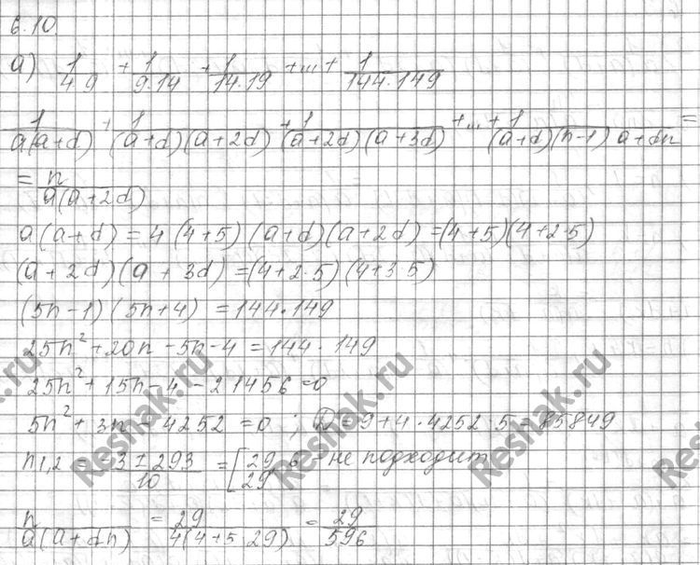 6.10.
а) 1/4·9 + 1/9·14 + 1/14·19 + ... + 1/144·149
1/a(a+d) + 1/(a+d)(a+2d) + 1/(a+2d)(a+3d) + ... + 1/(a+d)(n-1) a+dn =
= n/a(a+2d)
a(a+d) = 4(4+5) (a+d)(a+2d) = (4+5)(4+2·5)
(a+2d)(a+3d) = (4+2·5)(4+3·5)
(5n-1)(5n+4) = 144·149
25n²+20n-5n-4 = 144·149
25n²+15n-4-21456=0
5n²+3n-4252=0 ; D=9+4·4252·5=85849
n1,2 = -3±293/10 = [29,6 - не подходит
29
n/a(a+dn) = 29/4(4+5·29) = 29/596
Reshak.ru
Reshak.ru
Reshak.ru